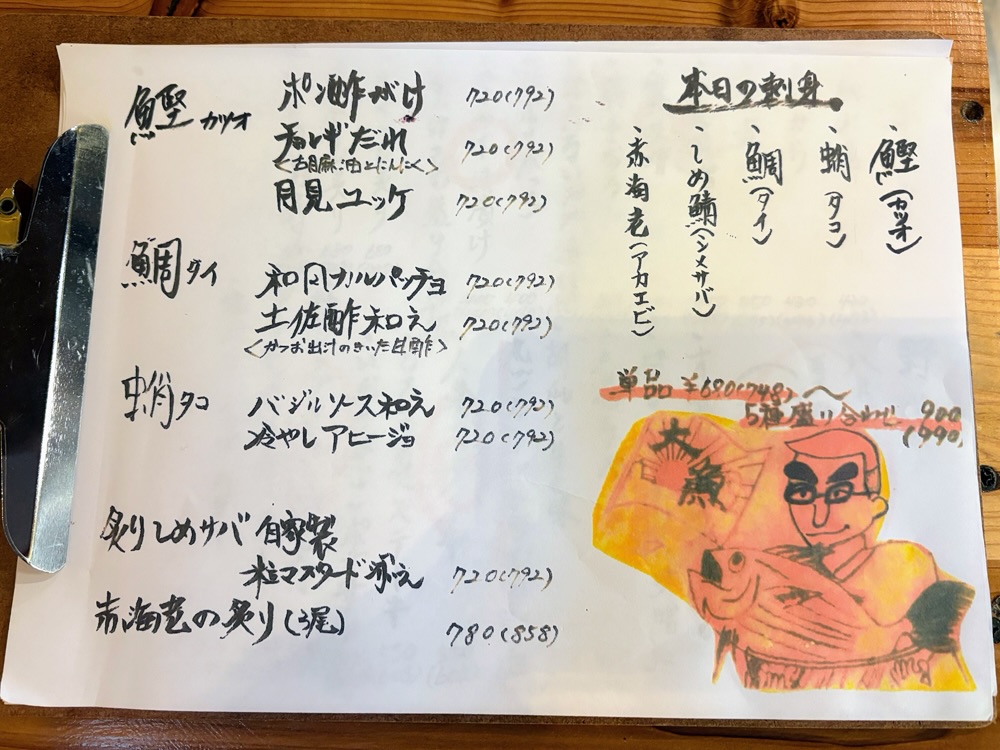 鰹 カツオ
ポン酢がけ 720(792)
チョレギだれ 720(792)
<胡麻油とにんにく>
月見ユッケ 720(792)
鯛 タイ
和風カルパッチョ 720(792)
土佐酢和え 720(792)
<かつお出汁のきいた甘酢>
蛸 タコ
バジルソース和え 720(792)
冷やしアヒージョ 720(792)
炙りしめサバ 自家製
粒マスタード添え 720(792)
赤海老の炙り(3尾) 780(858)
本日の刺身
・鰹(カツオ)
・蛸(タコ)
・鯛(タイ)
・しめ鯖(シメサバ)
・赤海老(アカエビ)
単品 ¥680(748)〜
5種盛り合わせ 900
(990)
大
魚